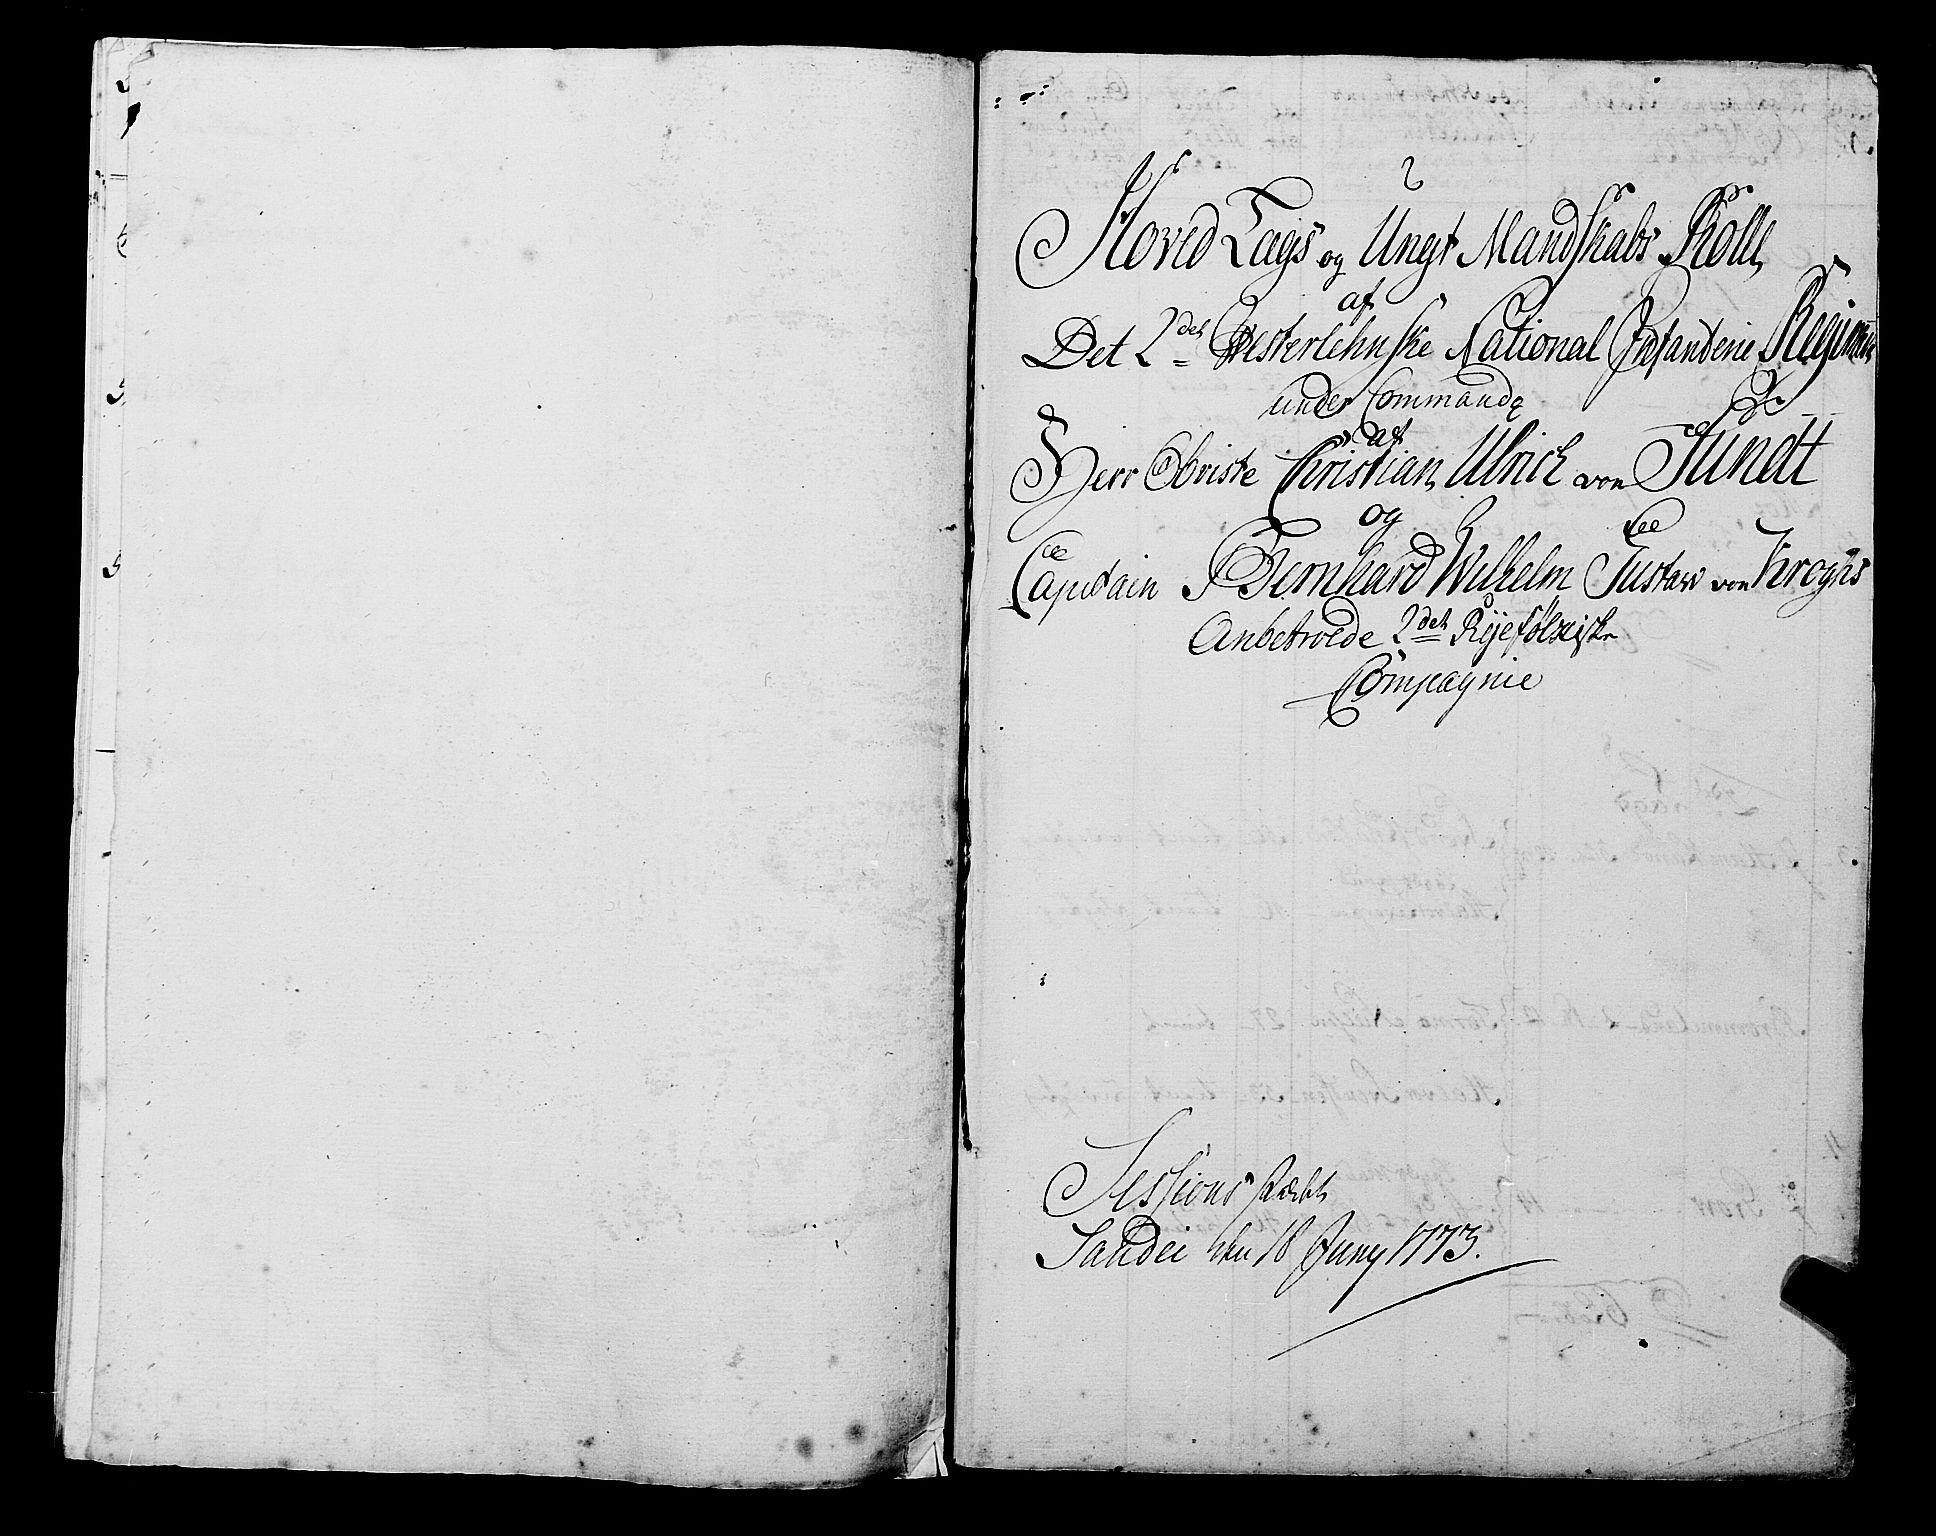 Hoved Lægs og Ungt Mandskabs Rolle
af
Det 2det Westerlehnske National Infanterie Regiment
under Commando
af
Herr Obriste Christian Ulrich von
og
Capitain Bernhard Wilhelm Gustav von Kroghs
Anbetroede 2det Ryefölkeiske
Compagnie
Sessions
den 18 Juny 1773.